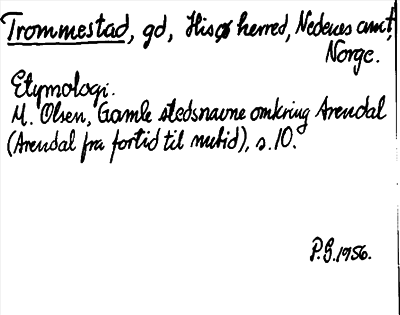 Trommestad, gd, Hisø herred, Nedenes amt,
Norge.
Etymologi.
M. Olsen, Gamle stedsnavne omkring Arendal
(Arendal fra fortid til nutid), s. 10.
P.G. 1956.